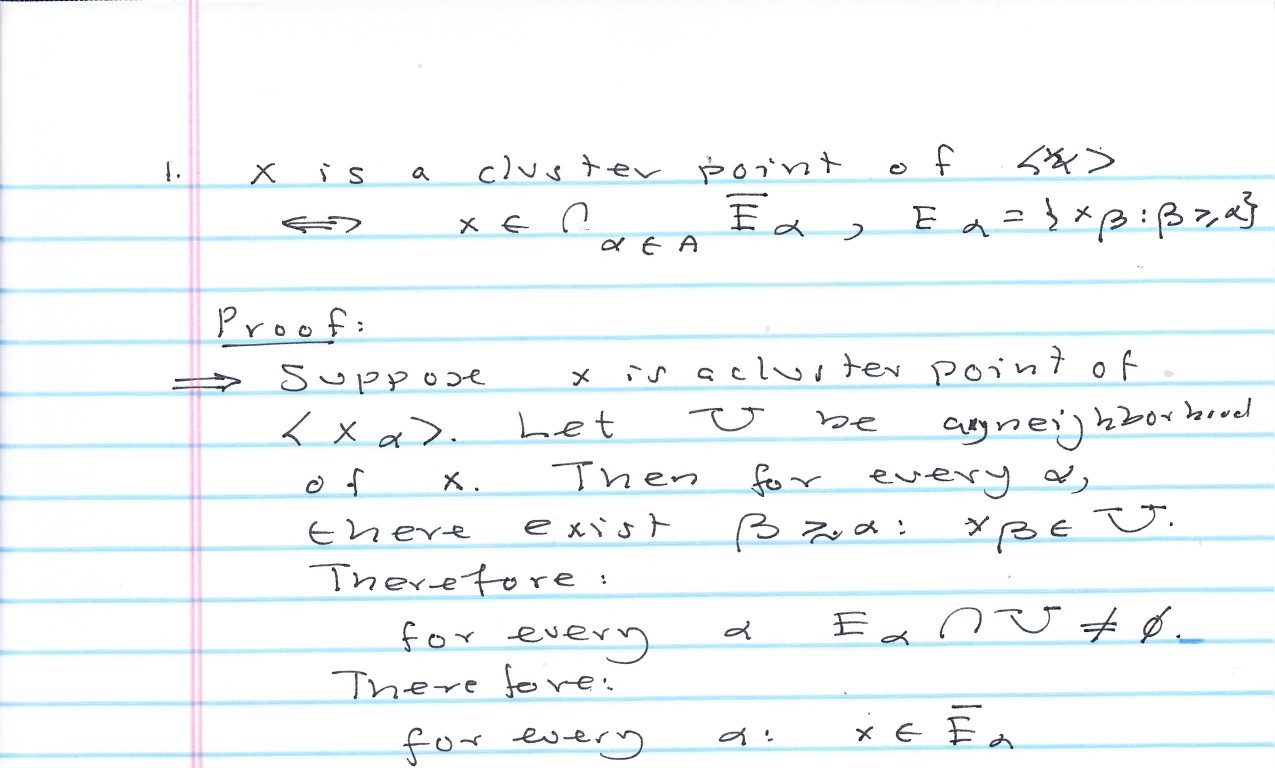 1. x is a cluster point of <xα>
⟺ x ∈ ∩ α ∈ A E̅α , Eα = {xβ : β ≥ α}
Proof:
⟹ Suppose x is a cluster point of
<xα>. Let U be any neighborhood
of x. Then for every α,
there exist β ≳ α : xβ ∈ U.
Therefore :
for every α Eα ∩ U ≠ ∅.
Therefore:
for every α : x ∈ E̅α